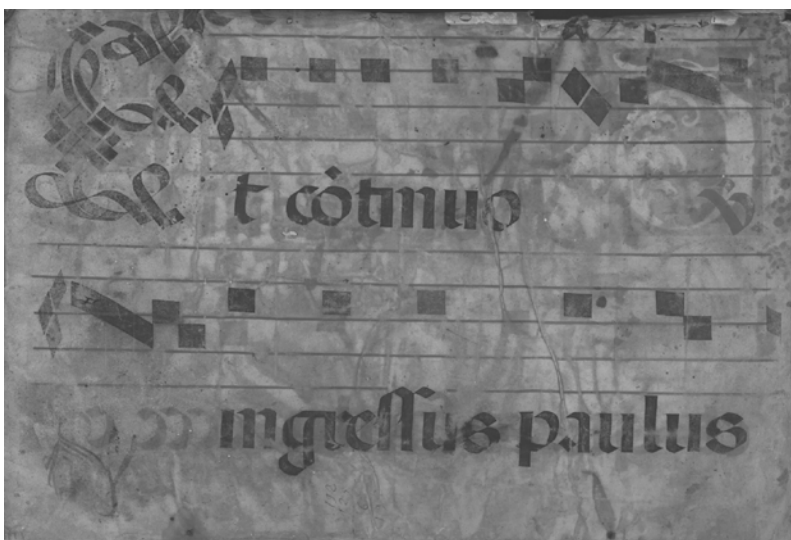 Et cōtinuo
ingressus paulus